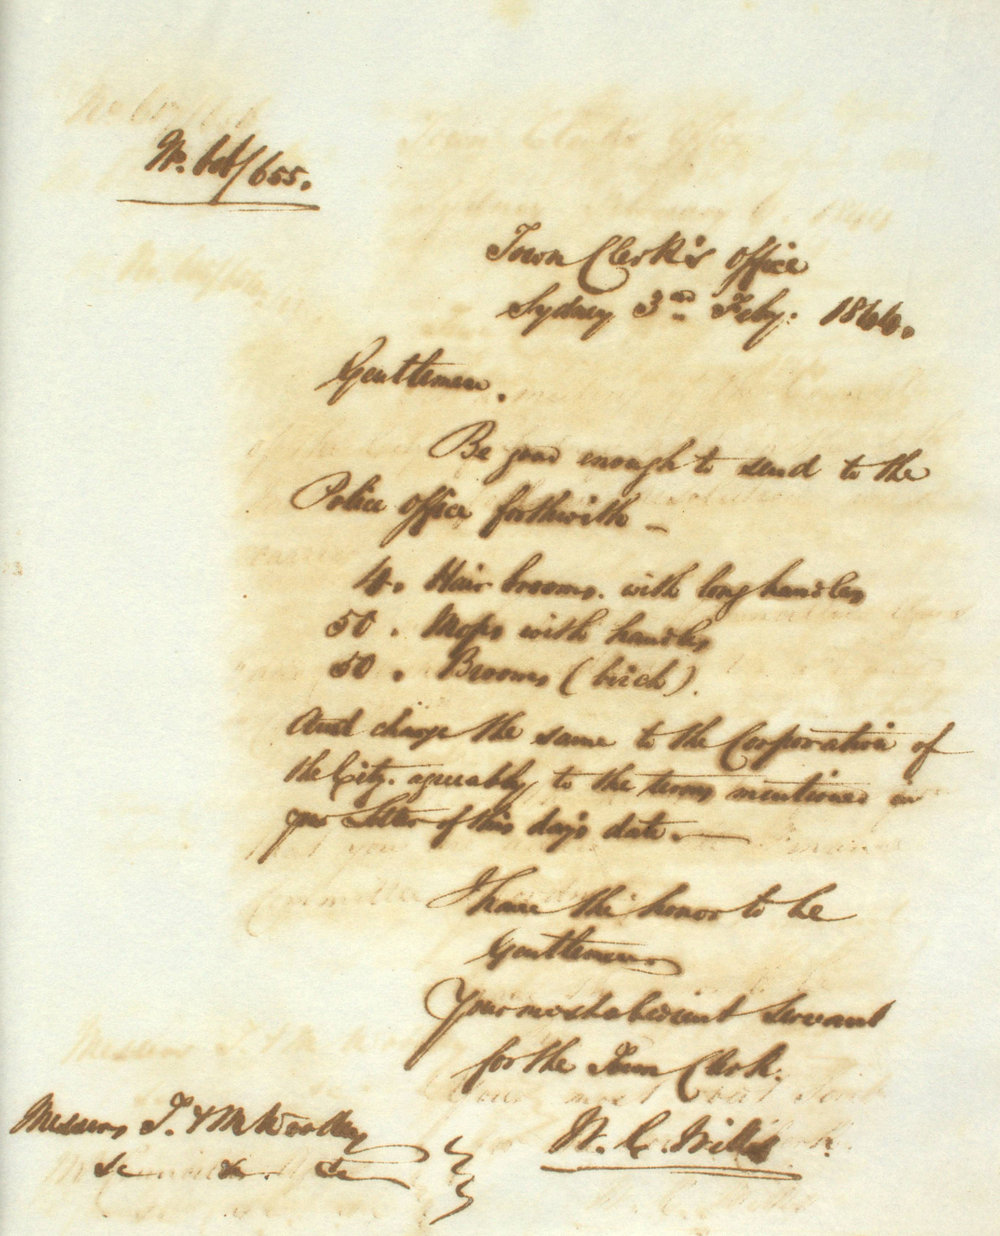 No. 606/655.
Town Clerk's Office
Sydney 3rd Feby. 1844.
Gentlemen.
Be good enough to send to the
Police Office forthwith —
4. Hair brooms. with long handles
50. Mops with handles
50. Brooms (birch).
And charge the same to the Corporation of
the City. agreeably to the terms mentioned in
your Letter of this day's date. —
I have the honor to be
Gentlemen.
Your most obedient Servant
for the Town Clerk.
W. C. Wills
Messers T. & M Woolley
&c &c &c